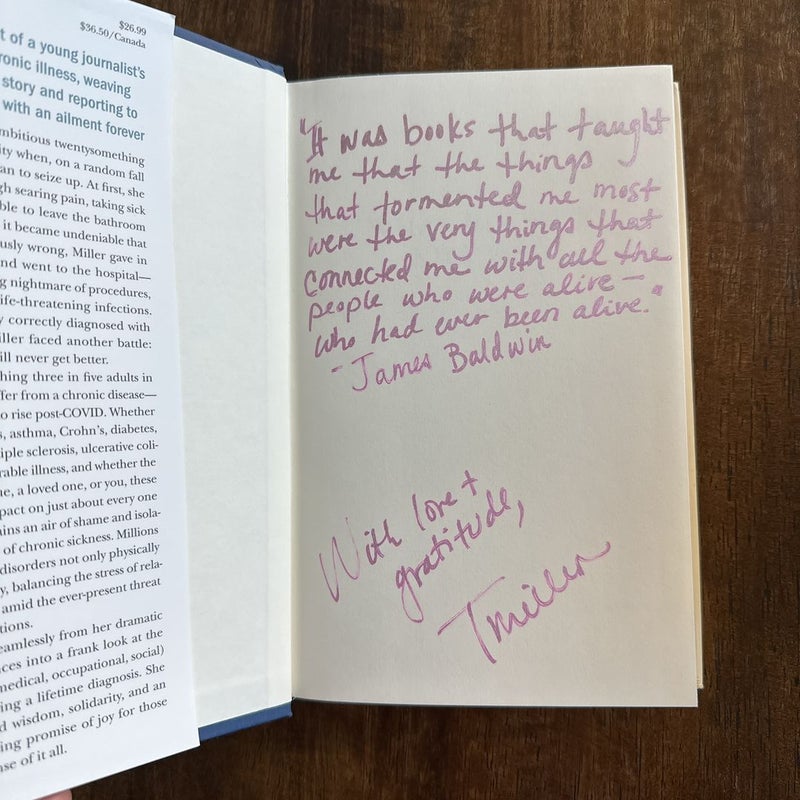 $26.99
$36.50/Canada
t of a young journalist's
ronic illness, weaving
story and reporting to
with an ailment forever
mbitious twentysomething
ity when, on a random fall
an to seize up. At first, she
gh searing pain, taking sick
ble to leave the bathroom
it became undeniable that
usly wrong, Miller gave in
nd went to the hospital—
g nightmare of procedures,
ife-threatening infections.
y correctly diagnosed with
iller faced another battle:
ill never get better.
hing three in five adults in
ffer from a chronic disease—
o rise post-COVID. Whether
s, asthma, Crohn's, diabetes,
iple sclerosis, ulcerative coli-
rable illness, and whether the
ne, a loved one, or you, these
pact on just about every one
ins an air of shame and isola-
of chronic sickness. Millions
disorders not only physically
y, balancing the stress of rela-
amid the ever-present threat
tions.
eamlessly from her dramatic
ces into a frank look at the
medical, occupational, social)
ing a lifetime diagnosis. She
d wisdom, solidarity, and an
ing promise of joy for those
se of it all.
"It was books that taught
me that the things
that tormented me most
were the very things that
connected me with all the
people who were alive—
who had ever been alive."
- James Baldwin
With love +
gratitude,
TMiller